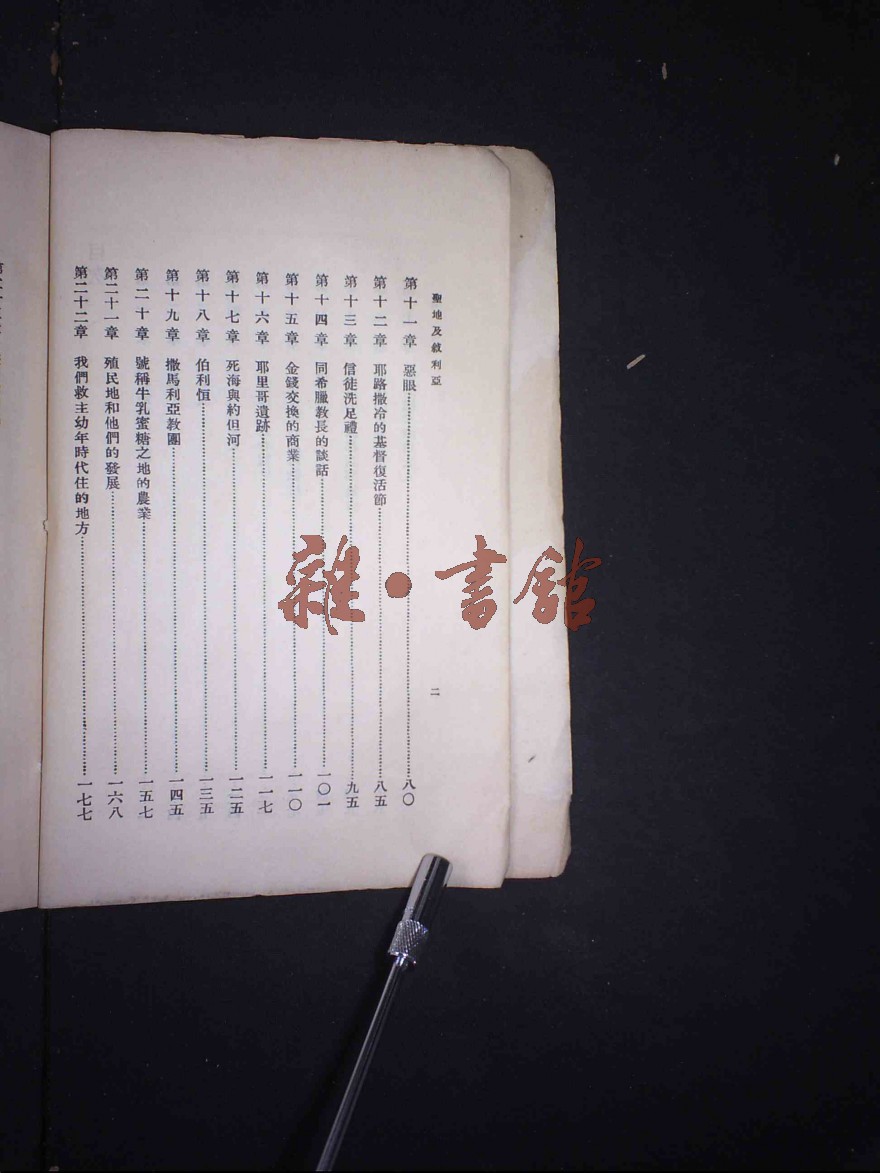 聖地及敘利亞
二
第十一章 惡眼……八〇
第十二章 耶路撒冷的基督復活節……八五
第十三章 信徒洗足禮……九五
第十四章 同希臘教長的談話……一〇一
第十五章 金錢交換的商業……一一〇
第十六章 耶里哥遺跡……一一七
第十七章 死海與約但河……一二五
第十八章 伯利恆……一三五
第十九章 撒馬利亞教團……一四五
第二十章 號稱牛乳蜜糖之地的農業……一五七
第二十一章 殖民地和他們的發展……一六八
第二十二章 我們救主幼年時代住的地方……一七七
雜·書館